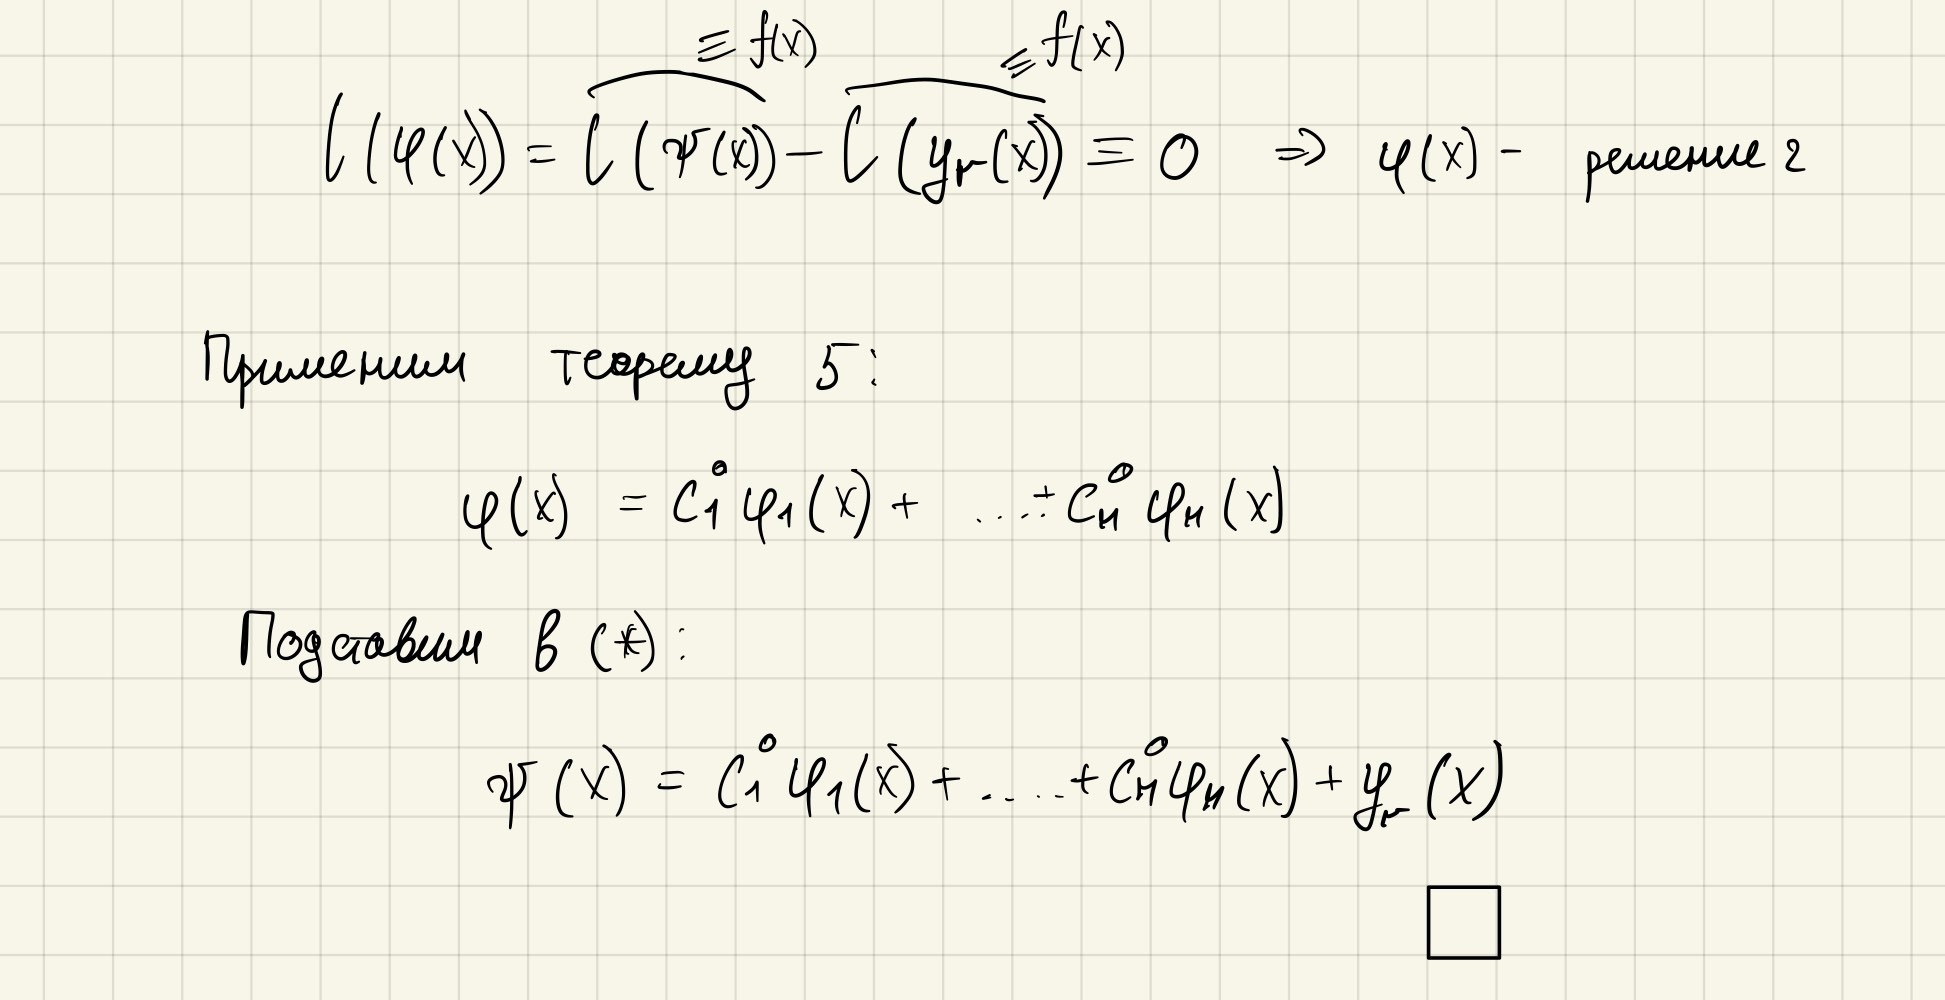 ≡ f(x) ≡ f(x)
L(φ(x)) = L(ψ(x)) - L(yᵣ(x)) ≡ 0 ⇒ φ(x) - решение 2
Применим теорему 5:
φ(x) = C₁⁰φ₁(x) + ....+ Cₙ⁰φₙ(x)
Подставим в (*):
ψ(x) = C₁⁰φ₁(x) + .....+ Cₙ⁰φₙ(x) + yᵣ(x)